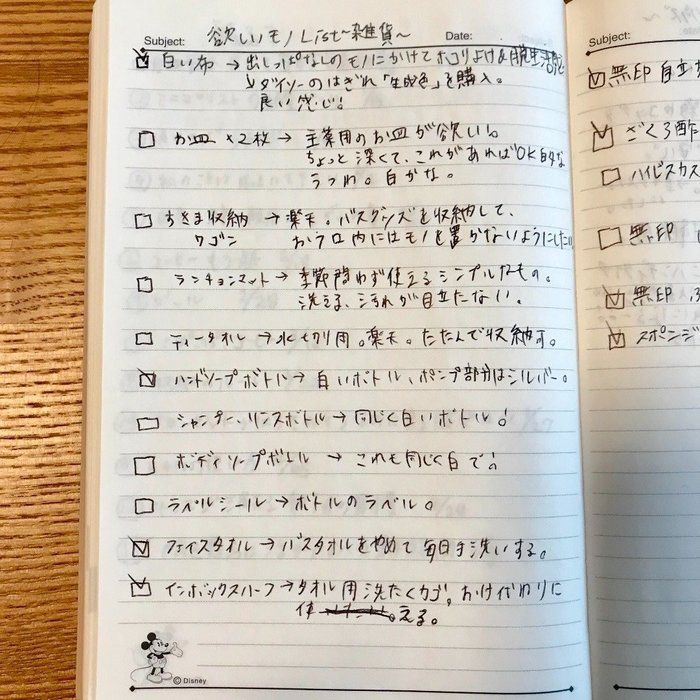 Subject: 欲しいモノList～雑貨～ Date:
白い布 → 出しっぱなしのモノにかけてホコリよけ&脱生活感
↳ダイソーのはぎれ「生成色」を購入。
良い感じ!
お皿×2枚 → 主菜用のお皿が欲しい。
ちょっと深くて、これがあればOK的な
うつわ。白かな。
すきま収納 → 楽天。バスグッズを収納して、
ワゴン おフロ内にはモノを置かないようにしたい
ランチョンマット → 季節問わず使えるシンプルなもの。
洗える、汚れが目立たない。
ティータオル → 水切り用。楽天。たたんで収納す。
ハンドソープボトル → 白いボトル、ポンプ部分はシルバー。
シャンプー、リンスボトル → 同じく白いボトル!
ボディソープボトル → これも同じく白で!
ラベルシール → ボトルのラベル。
フェイスタオル → バスタオルをやめて毎日手洗いする。
インボックスハーフ → タオル用洗たくカゴ。おけ代わりに
使える。
© Disney
Subject:
無印 自立
ざくろ酢
ハイビスカス
無印
無印
スポンジ